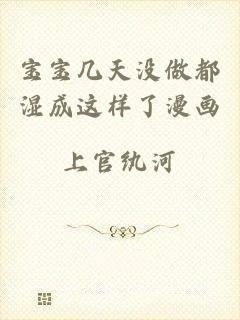 宝宝几天没做都
湿成这样了漫画
上官纨河